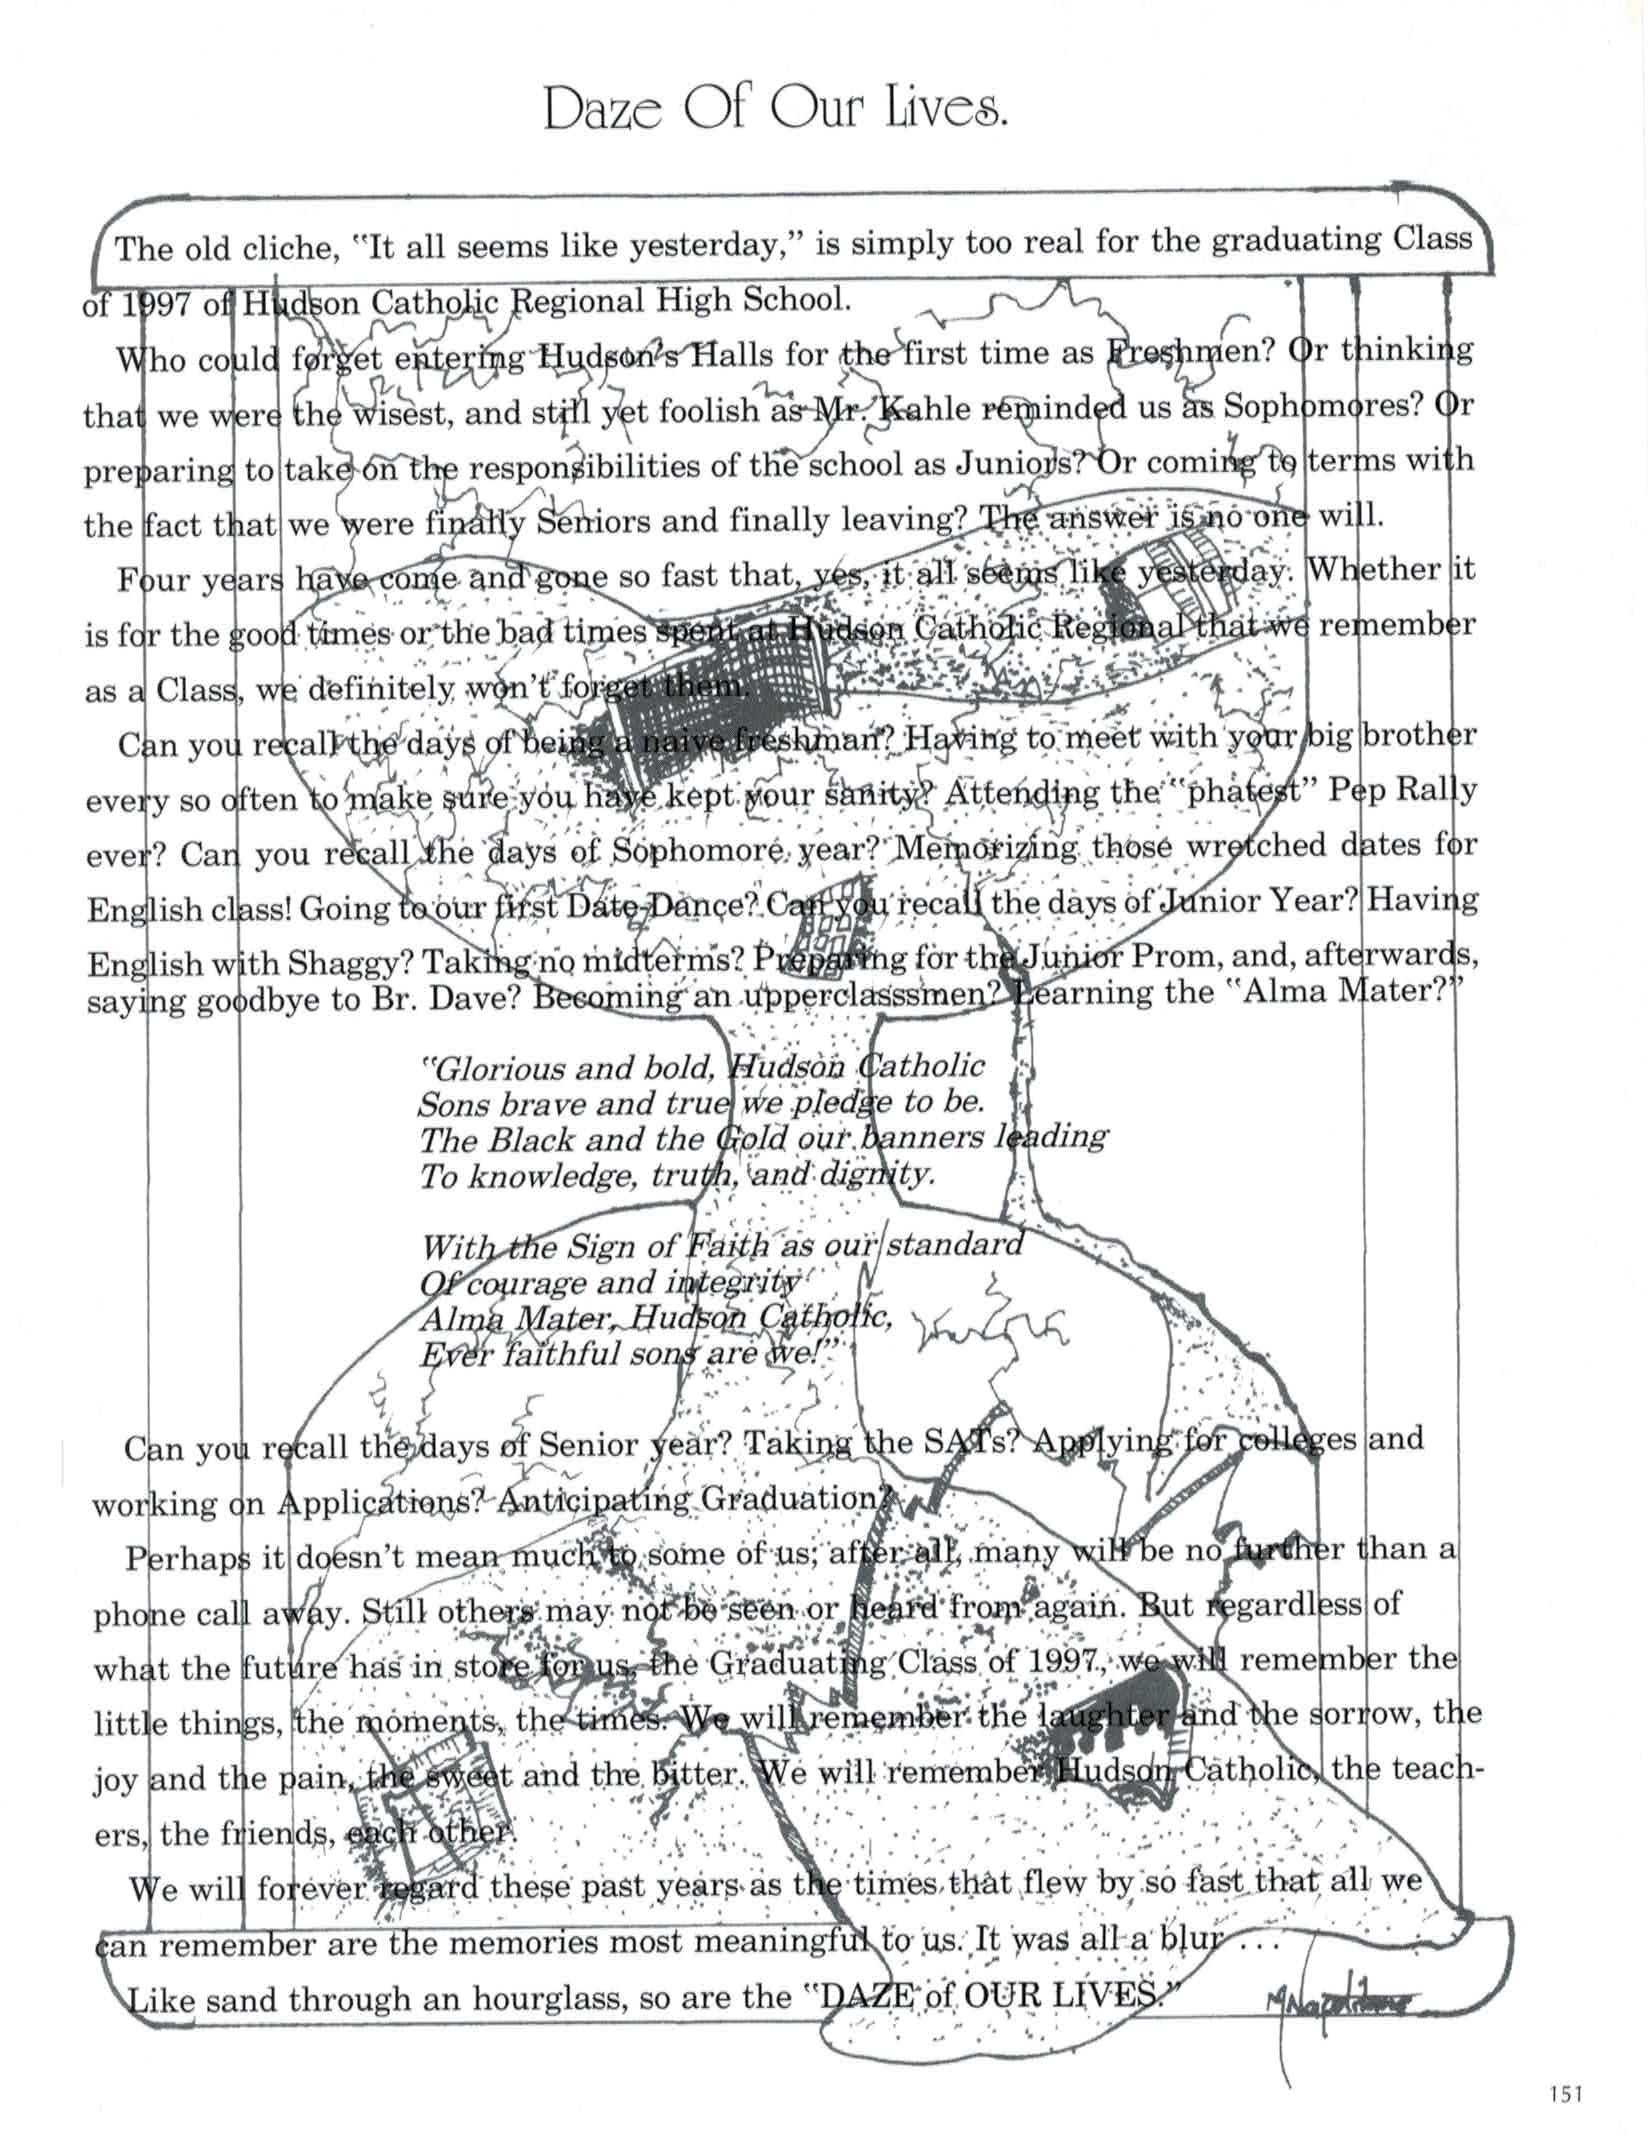 Daze Of Our Lives.
The old cliche, "It all seems like yesterday," is simply too real for the graduating Class
of 1997 of Hudson Catholic Regional High School.
Who could forget entering Hudson's Halls for the first time as Freshmen? Or thinking
that we were the wisest, and still yet foolish as Mr. Kahle reminded us as Sophomores? Or
preparing to take on the responsibilities of the school as Juniors? Or coming to terms with
the fact that we were finally Seniors and finally leaving? The answer is no one will.
Four years have come and gone so fast that, yes, it all seems like yesterday. Whether it
is for the good times or the bad times spent at Hudson Catholic Regional that we remember
as a Class, we definitely won't forget them.
Can you recall the days of being a naive freshman? Having to meet with your big brother
every so often to make sure you have kept your sanity? Attending the "phatest" Pep Rally
ever? Can you recall the days of Sophomore year? Memorizing those wretched dates for
English class! Going to our first Date-Dance? Can you recall the days of Junior Year? Having
English with Shaggy? Taking no midterms? Preparing for the Junior Prom, and, afterwards,
saying goodbye to Br. Dave? Becoming an upperclasssmen? Learning the "Alma Mater?"
"Glorious and bold, Hudson Catholic
Sons brave and true we pledge to be.
The Black and the Gold our banners leading
To knowledge, truth, and dignity.
With the Sign of Faith as our standard
Of courage and integrity
Alma Mater, Hudson Catholic,
Ever faithful sons are we!"
Can you recall the days of Senior year? Taking the SATs? Applying for colleges and
working on Applications? Anticipating Graduation?
Perhaps it doesn't mean much to some of us; after all, many will be no further than a
phone call away. Still others may not be seen or heard from again. But regardless of
what the future has in store for us, the Graduating Class of 1997, we will remember the
little things, the moments, the times. We will remember the laughter and the sorrow, the
joy and the pain, the sweet and the bitter. We will remember Hudson Catholic, the teach-
ers, the friends, each other.
We will forever regard these past years as the times that flew by so fast that all we
can remember are the memories most meaningful to us. It was all a blur ...
Like sand through an hourglass, so are the "DAZE of OUR LIVES."
151